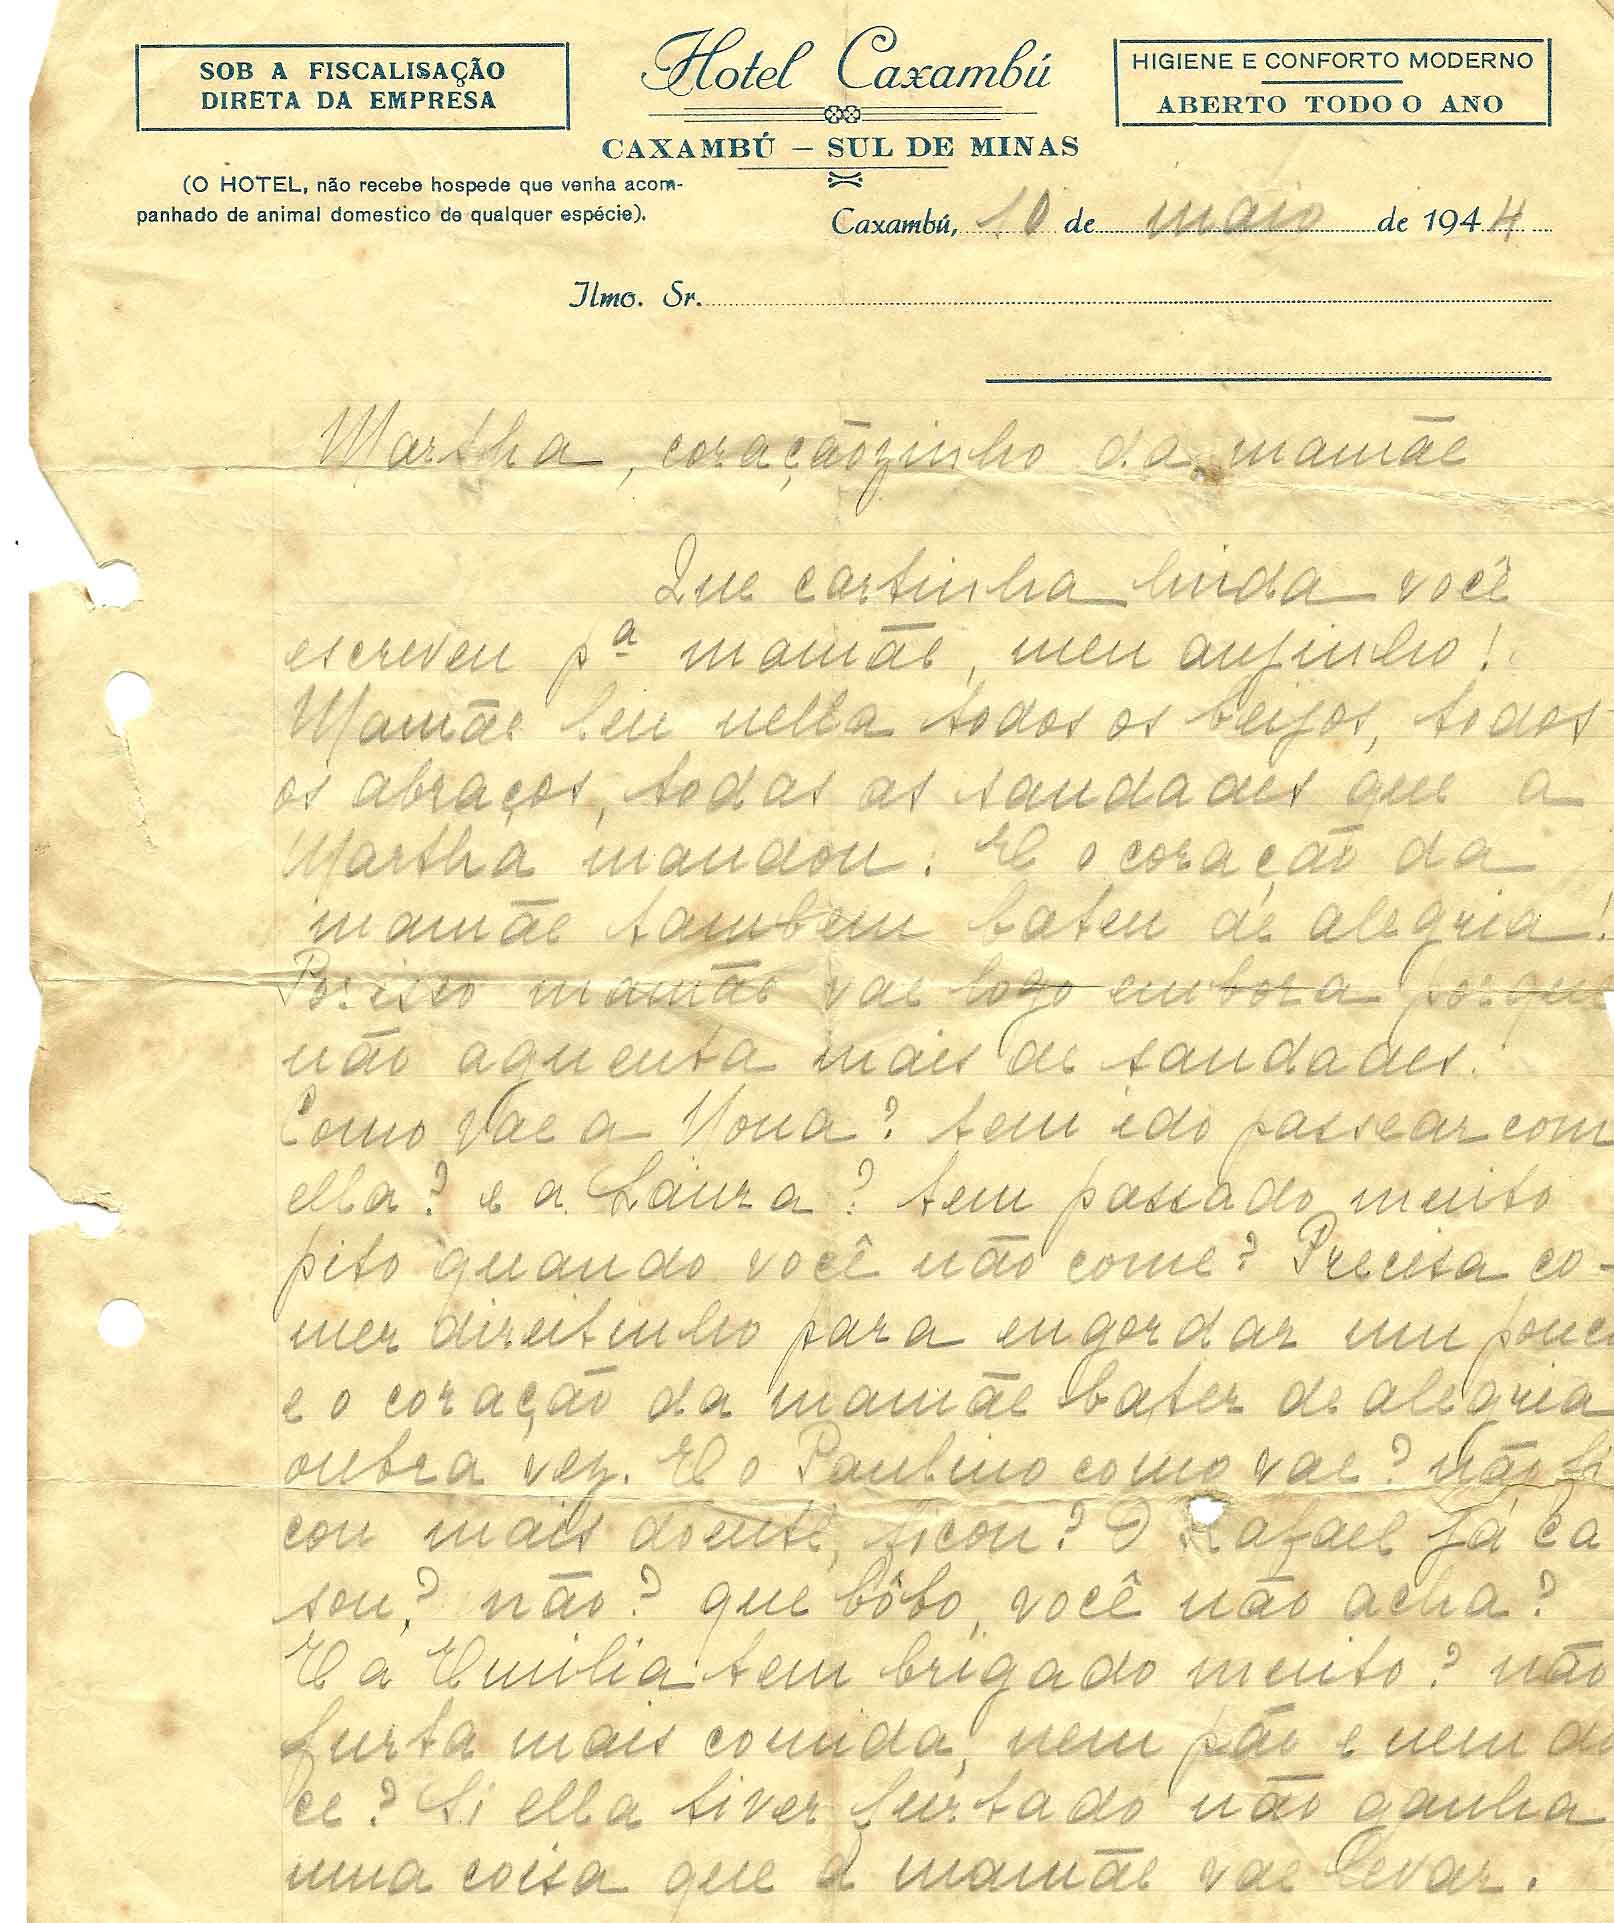 SOB A FISCALISAÇÃO
DIRETA DA EMPRESA
Hotel Caxambú
CAXAMBÚ – SUL DE MINAS
HIGIENE E CONFORTO MODERNO
ABERTO TODO O ANO
(O HOTEL, não recebe hospede que venha acom-
panhado de animal domestico de qualquer espécie).
Caxambú, 10 de maio de 1944
Ilmo. Sr.
Martha, coraçãozinho da mamãe
Que cartinha linda você
escreveu pª mamãe, meu anjinho!
Mamãe leu nella todos os beijos, todos
os abraços, todas as saudades que a
Martha mandou. E o coração da
mamãe tambem bateu de alegria!
Por isso mamãe vae logo embora porque
não aguenta mais de saudades.
Como vae a Nona? tem ido passear com
ella? e a Laura? tem passado muito
pito quando você não come? Precisa co-
mer direitinho para engordar um pouco
e o coração da mamãe bater de alegria
outra vez. E o Paulino como vae? não fi
cou mais doente, ficou? O Rafael já ca
sou? não? que bôbo, você não acha?
E a Emilia tem brigado muito? não
furta mais comida, nem pão e nem do
ce? Si ella tiver furtado não ganha
uma coisa que a mamãe vae levar.